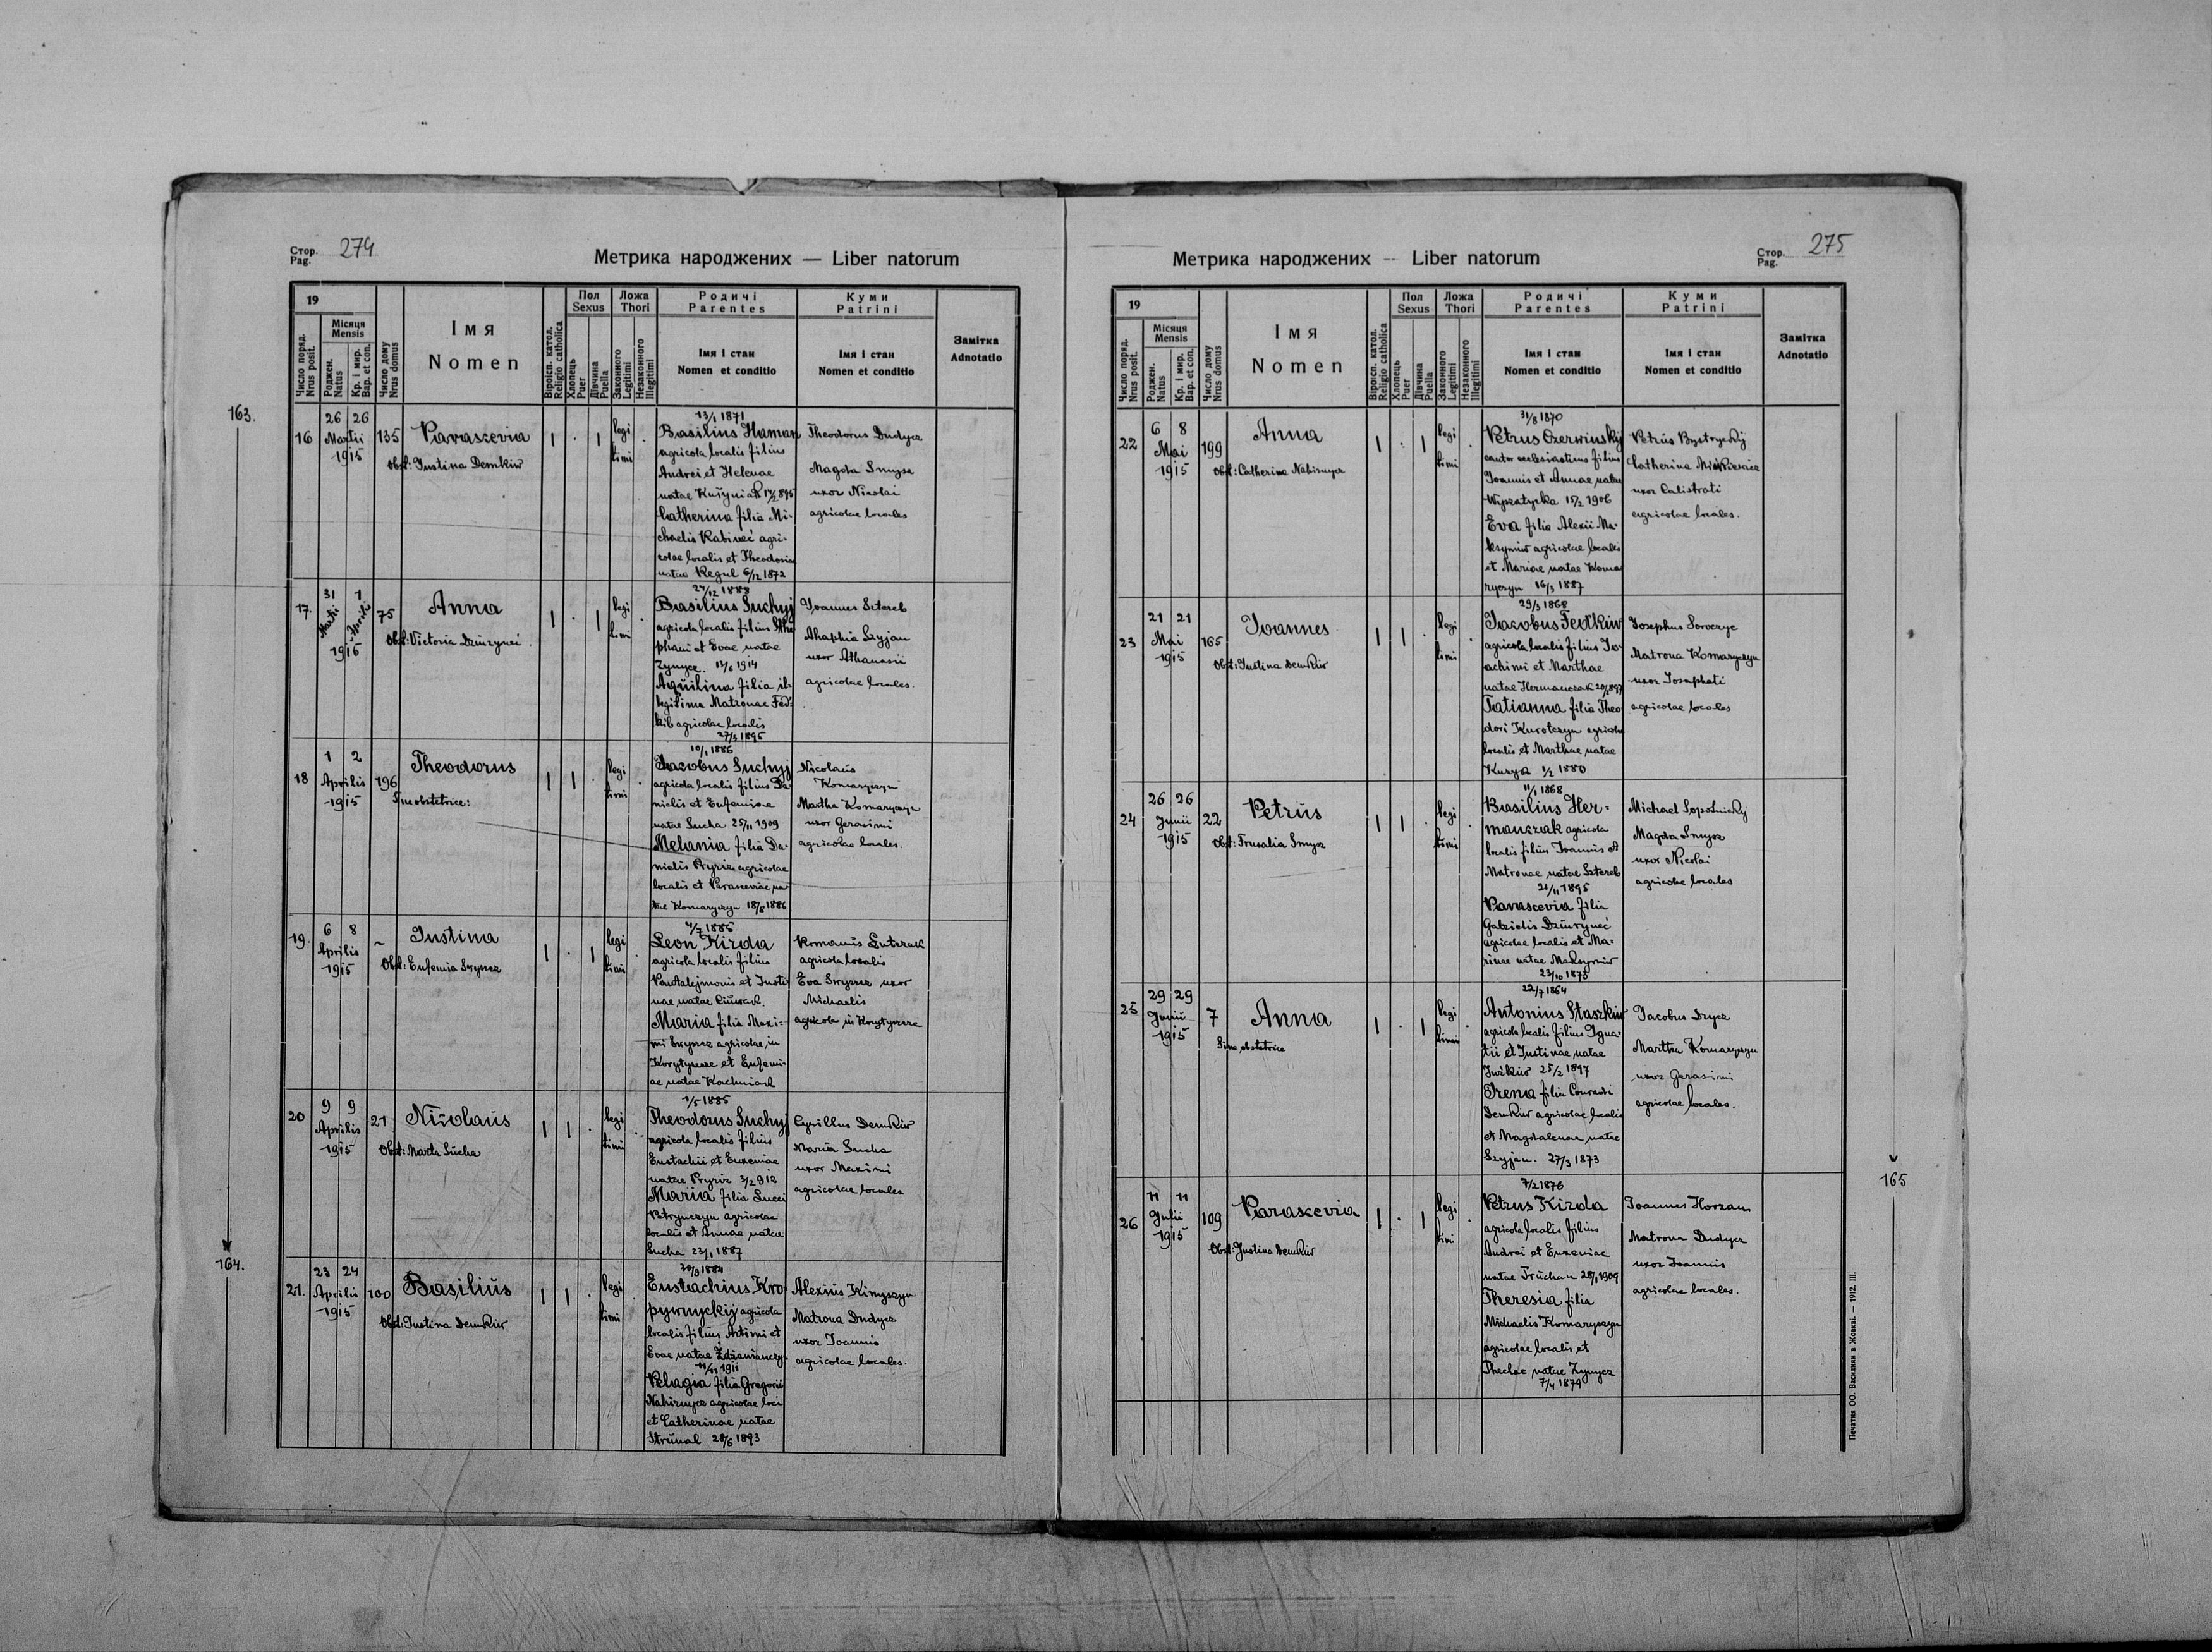 Стор. 274
Pag.
Метрика народжених — Liber natorum
19
Число поряд.
Nrus posit.
Місяця
Mensis
Роджен.
Natus
Кр. і мир.
Bap. et con.
Число дому
Nrus domus
Імя
Nomen
Віроісп. катол.
Religio catholica
Пол
Sexus
Хлопець
Puer
Дівчина
Puella
Ложа
Thori
Законного
Legitimi
Незаконного
Illegitimi
Родичі
Parentes
Імя і стан
Nomen et conditio
Куми
Patrini
Імя і стан
Nomen et conditio
Замітка
Adnotatio
163.
16
26 26
Martii
1915
135
Parascevia
Obst: Justina Demkiw
legi
timi
13/1 1871
Basilius Haman
agricola localis filius
Andrei et Helenae
natae
Catherina filia Mi-
chaelis agri-
colae localis et Theodosiae
natae Regul 6/12 1872
Theodorus Dudycz
Magda Smysz
uxor Nicolai
agricolae locales
17.
31 1
Martii Aprilis
1915
75
Anna
Obst: Victoria
legi
timi
Basilius Suchyj
agricola localis filius Ste
phani et Evae natae
Zynycz. 1914
Aquilina filia il-
legitima Matronae Fed-
kiw agricolae localis
27/3 1895
Joannes Sztereb
Ahaphia Szyjan
uxor Athanasii
agricolae locales.
18
1 2
Aprilis
1915
196
Theodorus
Sine obstetrice:
legi
timi
10/1 1886
Jacobus Suchyj
agricola localis filius Da
nielis et Eufemiae
natae Sucha 25/11 1909
Melania filia Da-
nielis Pyriz agricolae
localis et Parasceviae na-
tae Komaryczyn 18/8 1886
Nicolaus
Komaryczyn
Martha Komaryczyn
uxor Gerasimi
agricolae locales.
19.
6 8
Aprilis
1915
~
Justina
Obst: Eufemia
legi
timi
4/7 1885
Leon Kirda
agricola localis filius
Pantalejmonis et Justi
nae natae
Maria filia Maxi-
mi agricolae in
et Eufemi-
ae natae Kachniach
Romanus
agricola localis
Eva uxor
Michaelis
agricola in
20
9 9
Aprilis
1915
21
Nicolaus
Obst: Marta Sucha
legi
timi
1/5 1885
Theodorus Suchyj
agricola localis filius
Eustachii et Euxeniae
natae Pyriz 3/2 912
Maria filia Lucei
Petrynczyn agricolae
localis et Annae natae
Sucha 23/1 1887
Cyrillus Demkiw
Maria Sucha
uxor Maximi
agricolae locales
164.
21.
23 24
Aprilis
1915
100
Basilius
Obst: Justina Demkiw
legi
timi
20/9 1884
Eustachius Kro
pywnyckij agricola
localis filius Artimi et
Evae natae
11/11 1911
Pelagia filia Gregorii
Nahirnycz agricolae loci
et Catherinae natae
Strunal 28/6 1893
Alexius Kimyszyn
Matrona Dudycz
uxor Joannis
agricolae locales.
Метрика народжених – Liber natorum
Стор. 275
Pag.
19
Число поряд.
Nrus posit.
Місяця
Mensis
Роджен.
Natus
Кр. і мир.
Bap. et con.
Число дому
Nrus domus
Імя
Nomen
Віроісп. катол.
Religio catholica
Пол
Sexus
Хлопець
Puer
Дівчина
Puella
Ложа
Thori
Законного
Legitimi
Незаконного
Illegitimi
Родичі
Parentes
Імя і стан
Nomen et conditio
Куми
Patrini
Імя і стан
Nomen et conditio
Замітка
Adnotatio
22
6 8
Mai
1915
199
Anna
Obst: Catherina Nahirnycz
legi
timi
31/8 1870
Petrus Czerwinskij
cantor ecclesiasticus filius
Joannis et Annae natae
15/2 1906
Eva filia Alexii Ma-
ksymiw agricolae localis
et Mariae natae Koma
ryczyn 16/3 1887
Petrus Bystryckij
Catherina
uxor Calistrati
agricolae locales.
23
21 21
Mai
1915
165
Joannes
Obst: Justina Demkiw
legi
timi
29/3 1868
Jacobus Fedkiw
agricola localis filius Jo-
achimi et Marthae
natae Hermanczak
Tatianna filia Theo
dori Kurotczyn agricolae
localis et Marthae natae
Kuzyn 1/2 1880
Josephus
Matrona Komaryczyn
uxor Josaphati
agricolae locales
24
26 26
Junii
1915
22
Petrus
Obst: Smysz
legi
timi
11/1 1868
Basilius Her-
manczak agricola
localis filius Joannis et
Matronae natae Sztereb
21/11 1895
Parascevia filia
Gabrielis
agricolae localis et Ma-
riae natae Maksymiw
23/10 1875
Michael Sopotnickij
Magda Smysz
uxor Nicolai
agricolae locales
25
29 29
Junii
1915
7
Anna
Sine obstetrice
legi
timi
22/7 1864
Antonius Staszkiw
agricola localis filius Igna-
tii et Justinae natae
25/2 1897
Irena filia Conradi
Demkiw agricolae localis
et Magdalenae natae
Szyjan. 27/3 1873
Jacobus Dzycz
Martha Komaryczyn
uxor Gerasimi
agricolae locales.
26
11 11
Julii
1915
109
Parascevia
Obst: Justina Demkiw
legi
timi
7/2 1876
Petrus Kirda
agricola localis filius
Andrei et Euxeniae
natae Truchan 28/1 1909
Theresia filia
Michaelis Komaryczyn
agricolae localis et
Theclae natae Zynycz
7/4 1879
Joannes
Matrona Dudycz
uxor Joannis
agricolae locales.
165
Печатня ОО. Василиян в Жовкві. — 1912. III.